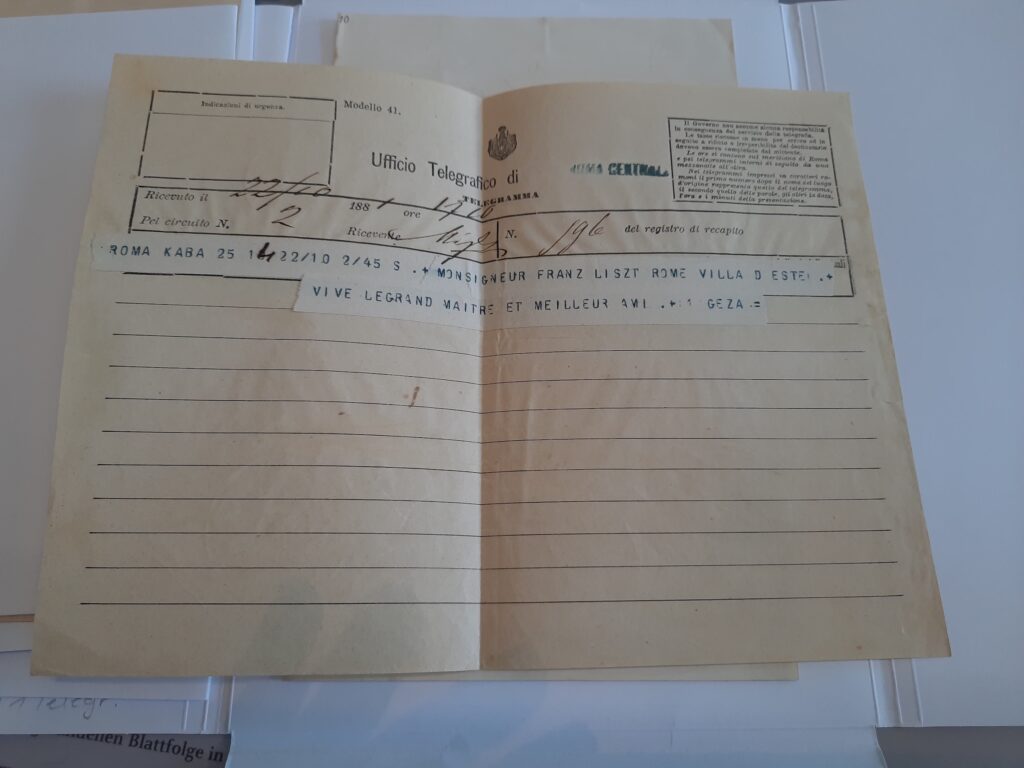 10
Indicazioni di urgenza.
Modello 41.
Ufficio Telegrafico di
ROMA CENTRALE
TELEGRAMMA
Il Governo non assume alcuna responsabilità
in conseguenza del servizio della telegrafia.
Le tasse riscosse in meno per errore od in
seguito a rifiuto o irreperibilità del destinatario
devono essere completate dal mittente.
Le ore si contano sul meridiano di Roma
e pei telegrammi interni di seguito da una
mezzanotte all'altra.
Nei telegrammi impressi in caratteri ro-
mani il primo numero dopo il nome del luogo
d'origine rappresenta quello del telegramma,
il secondo quello delle parole, gli altri la data,
l'ora e i minuti della presentazione.
Ricevuto il 22/10 1881 ore
Pel circuito N. 2 Ricevente
N. 196 del registro di recapito
ROMA KABA 25 14 22/10 2/45 S .+ MONSIGNEUR FRANZ LISZT ROME VILLA D ESTE .+
VIVE LEGRAND MAITRE ET MEILLEUR AMI .+ GEZA .=
Telegr.
Blattfolge in